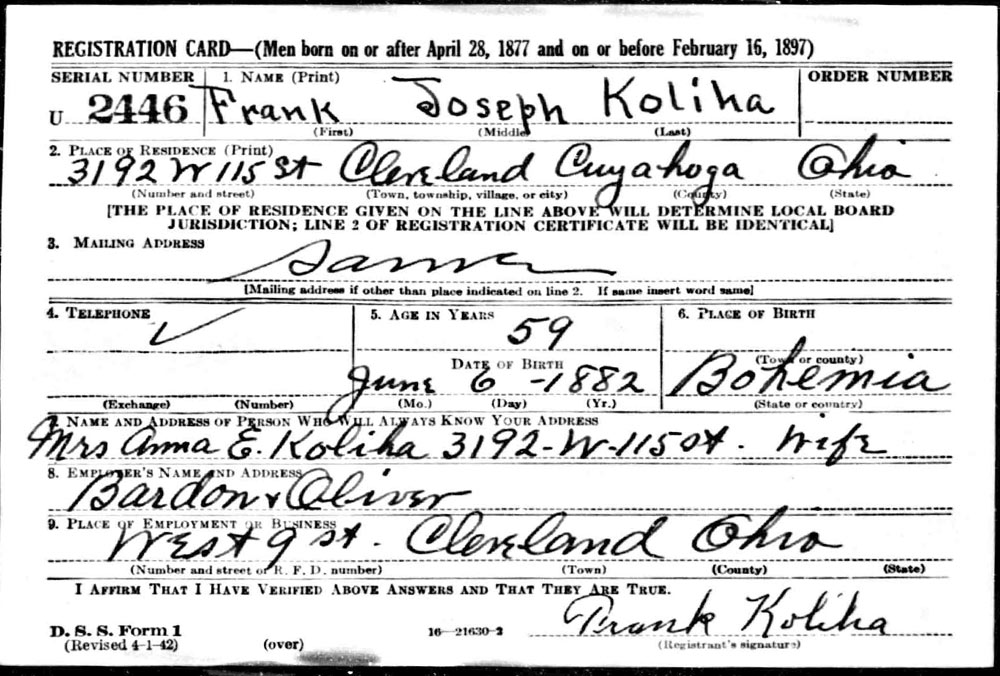 REGISTRATION CARD—(Men born on or after April 28, 1877 and on or before February 16, 1897)
SERIAL NUMBER 1. NAME (Print) ORDER NUMBER
U 2446 Frank Joseph Koliha
(First) (Middle) (Last)
2. PLACE OF RESIDENCE (Print)
3192 W 115 St Cleveland Cuyahoga Ohio
(Number and street) (Town, township, village, or city) (County) (State)
[THE PLACE OF RESIDENCE GIVEN ON THE LINE ABOVE WILL DETERMINE LOCAL BOARD
JURISDICTION; LINE 2 OF REGISTRATION CERTIFICATE WILL BE IDENTICAL]
3. MAILING ADDRESS
Same
[Mailing address if other than place indicated on line 2. If same insert word same]
4. TELEPHONE 5. AGE IN YEARS 6. PLACE OF BIRTH
✓ 59
DATE OF BIRTH (Town or county)
June 6 - 1882 Bohemia
(Exchange) (Number) (Mo.) (Day) (Yr.) (State or country)
7. NAME AND ADDRESS OF PERSON WHO WILL ALWAYS KNOW YOUR ADDRESS
Mrs Anna E. Koliha 3192-W-115 St. Wife
8. EMPLOYER'S NAME AND ADDRESS
Bardon & Oliver
9. PLACE OF EMPLOYMENT OR BUSINESS
West 9 St. Cleveland Ohio
(Number and street or R. F. D. number) (Town) (County) (State)
I AFFIRM THAT I HAVE VERIFIED ABOVE ANSWERS AND THAT THEY ARE TRUE.
Frank Koliha
D. S. S. Form 1
(Revised 4-1-42) (over) 16—21630-2 (Registrant's signature)